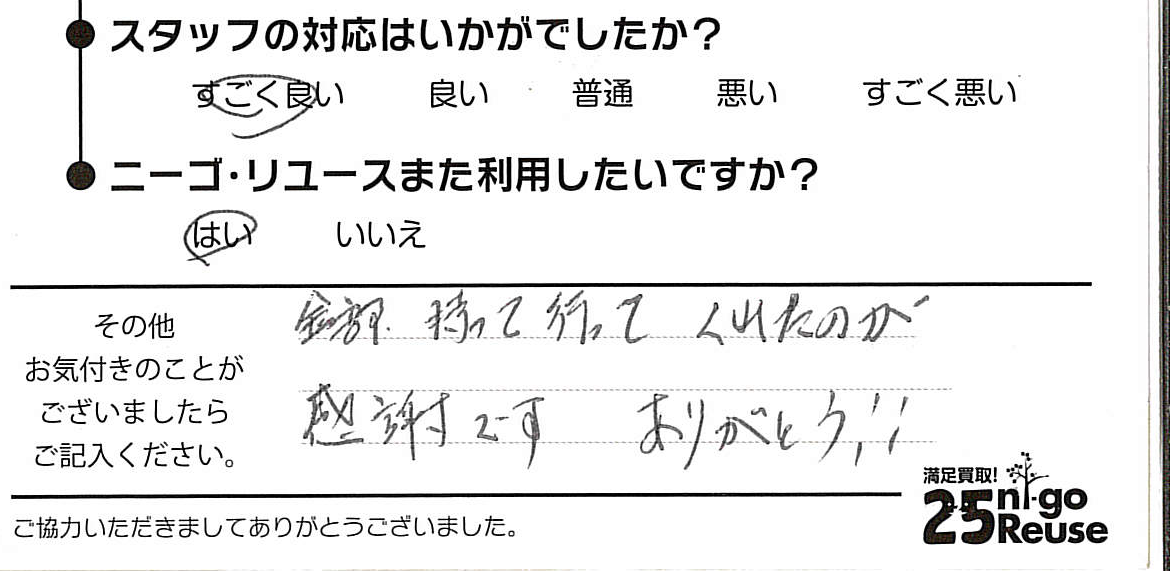 スタッフの対応はいかがでしたか？
すごく良い 良い 普通 悪い すごく悪い
ニーゴ・リユースまた利用したいですか？
はい いいえ
その他
お気付きのことが
ございましたら
ご記入ください。
全部 持って行って くれたのが
感謝です ありがとう!!
満足買取!
25 ni-go
Reuse
ご協力いただきましてありがとうございました。